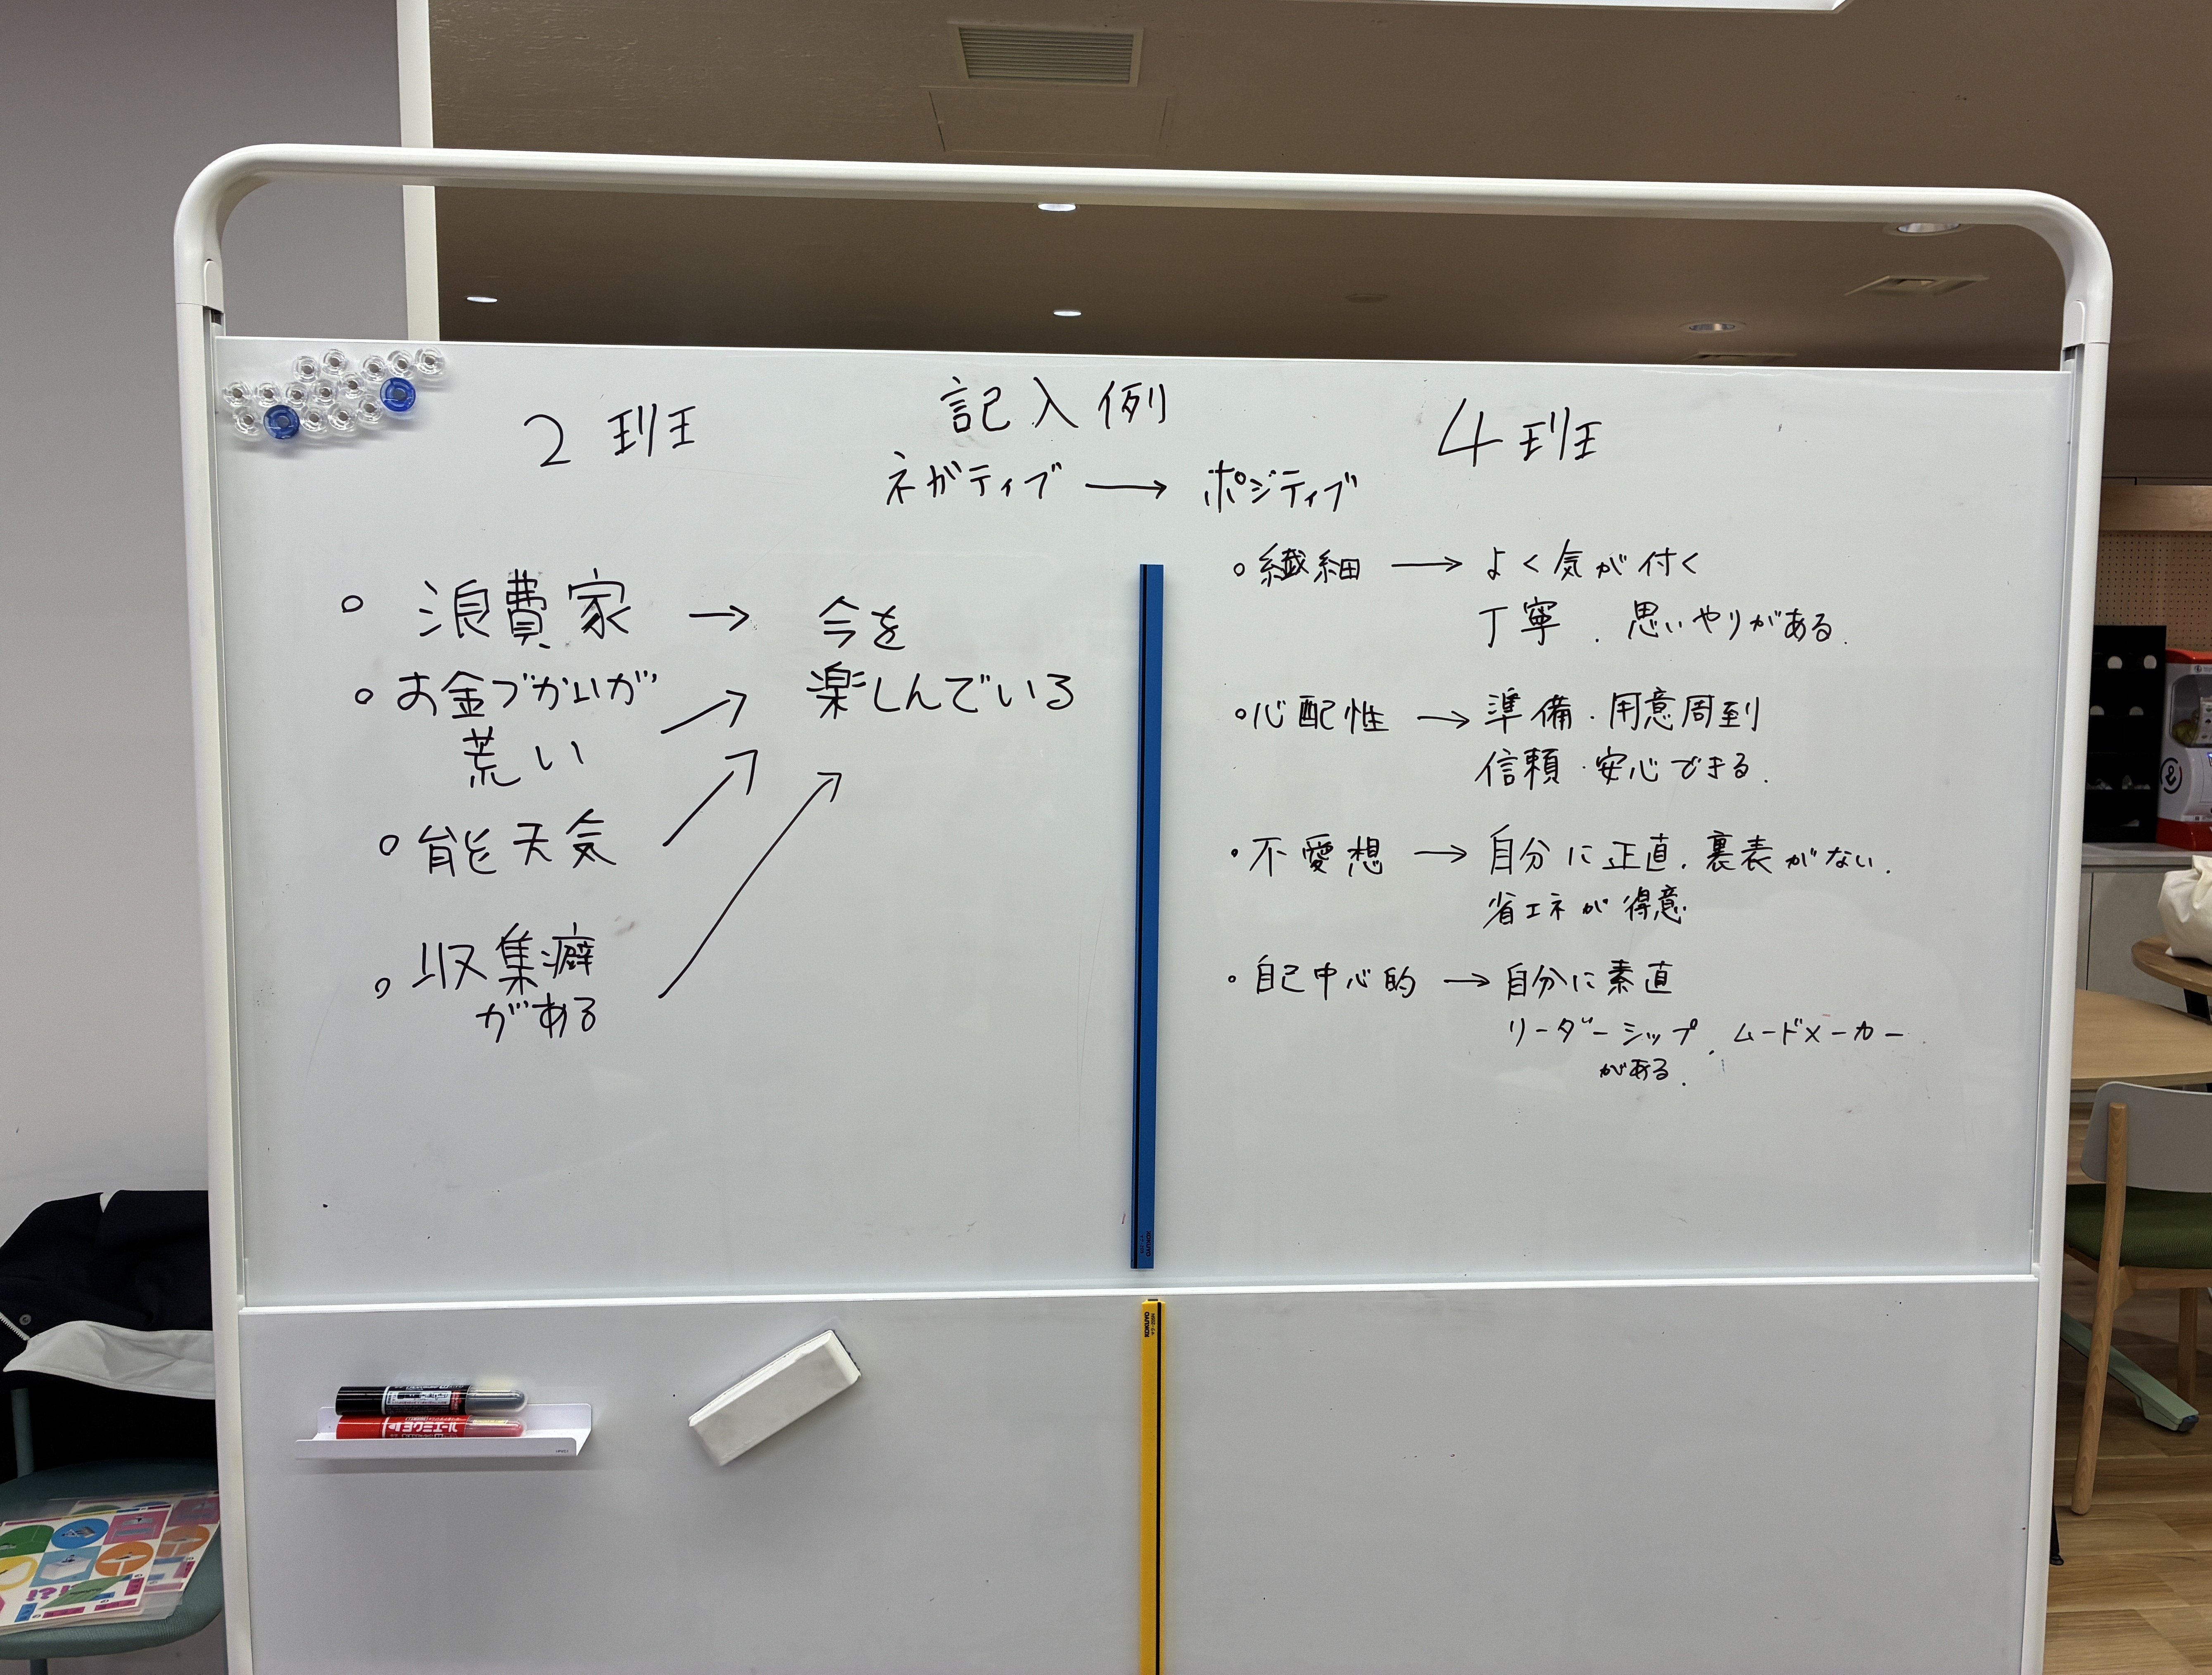 記入例
ネガティブ → ポジティブ
2班
○ 浪費家 → 今を
楽しんでいる
○ お金づかいが
荒い
○ 能天気
○ 収集癖
がある
4班
○ 繊細 → よく気が付く
丁寧、思いやりがある。
○ 心配性 → 準備・用意周到
信頼・安心できる。
・不愛想 → 自分に正直、裏表がない。
省エネが得意
○ 自己中心的 → 自分に素直
リーダーシップ、ムードメーカー
がある。
KOKUYO
KOKUYO